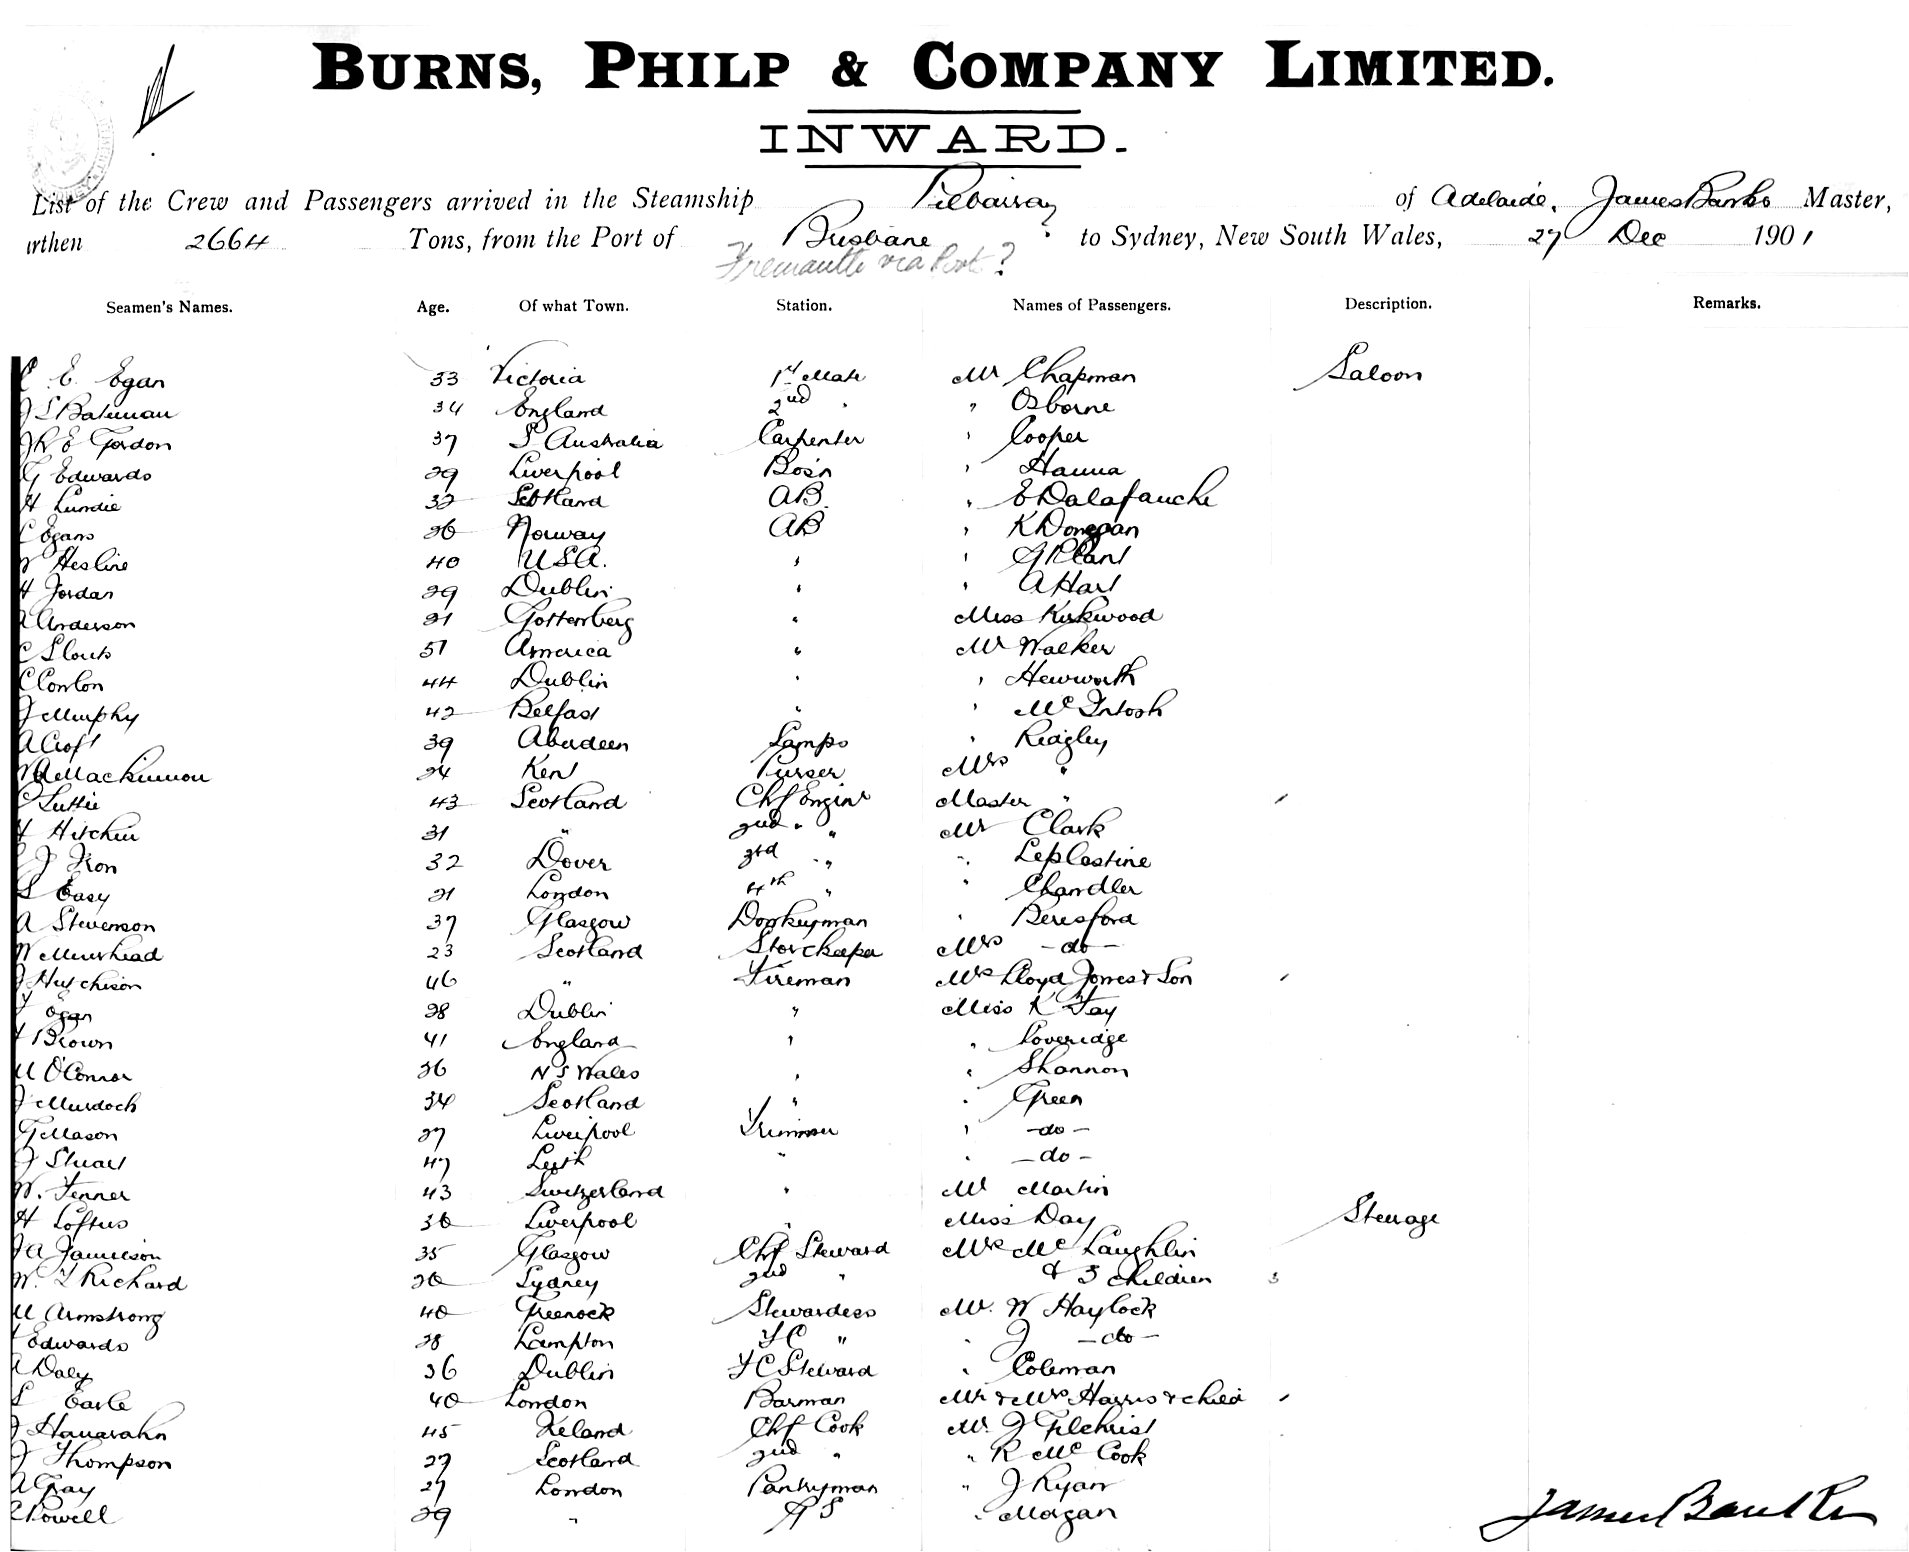 BURNS, PHILP & COMPANY LIMITED.
INWARD.
List of the Crew and Passengers arrived in the Steamship Pilbarra, of Adelaide, James Banks Master,
rthen 2664 Tons, from the Port of Brisbane to Sydney, New South Wales, 27 Dec 1901
Fremantle via Port ?
Seamen's Names. Age. Of what Town. Station. Names of Passengers. Description. Remarks.
E. Egan 33 Victoria 1st Mate Mr Chapman Saloon
J S Bateman 34 England 2nd " " Osborne
Gordon 37 S Australia Carpenter " Cooper
G Edwards 29 Liverpool Bos'n " Hanna
H Lundie 32 Scotland AB. " E Dalafauche
Egans 26 Norway AB " K Donegan
Hesline 40 USA. " " G Plant
H Jordan 29 Dublin " " A Hart
Anderson 21 Gottenberg " Miss Kirkwood
51 America " Mr Walker
C Conlon 44 Dublin " " Heworth
J Murphy 42 Belfast " " McIntosh
A Croft 39 Aberdeen Lamps " Ridgley
Mackinnon 24 Kent Purser Mrs "
Luttie 43 Scotland Chf Enginr Master "
Hitchin 31 " 2nd " " Mr Clark
J Iron 32 Dover 3rd " " " Leplastine
Easy 21 London 4th " " Chandler
A Stevenson 37 Glasgow Donkeyman " Beresford
W Muirhead 23 Scotland Storekeeper Mrs - do -
J Hutchison 46 " Fireman Mrs Lloyd Jones & Son
Egan 28 Dublin " Miss K Fay
Brown 41 England " " Loveridge
M O'Connor 26 N S Wales " " Shannon
J Murdoch 34 Scotland " " Green
G Mason 27 Liverpool Trimmer " - do -
J Stuart 47 Leith " " - do -
W. Fenner 43 Switzerland " Mr Martin
H Loftus 36 Liverpool " Miss Day Steerage
J A Jamieson 35 Glasgow Chf Steward Mrs McLaughlin
W. Richard 20 Sydney 2nd " & 3 children 3
M Armstrong 40 Greenock Stewardess Mr. W Haylock
Edwards 28 Lampton FC " " J - do -
Daly 36 Dublin FC Steward " Coleman
Earle 40 London Barman Mr & Mrs Harris & child
J Hanarahn 45 Ireland Chf Cook Mr. J Gilchrist
J Thompson 27 Scotland 2nd " " R McCook
A Gray 27 London Pantryman " J Ryan
Powell 29 " GS " Morgan
James Banks